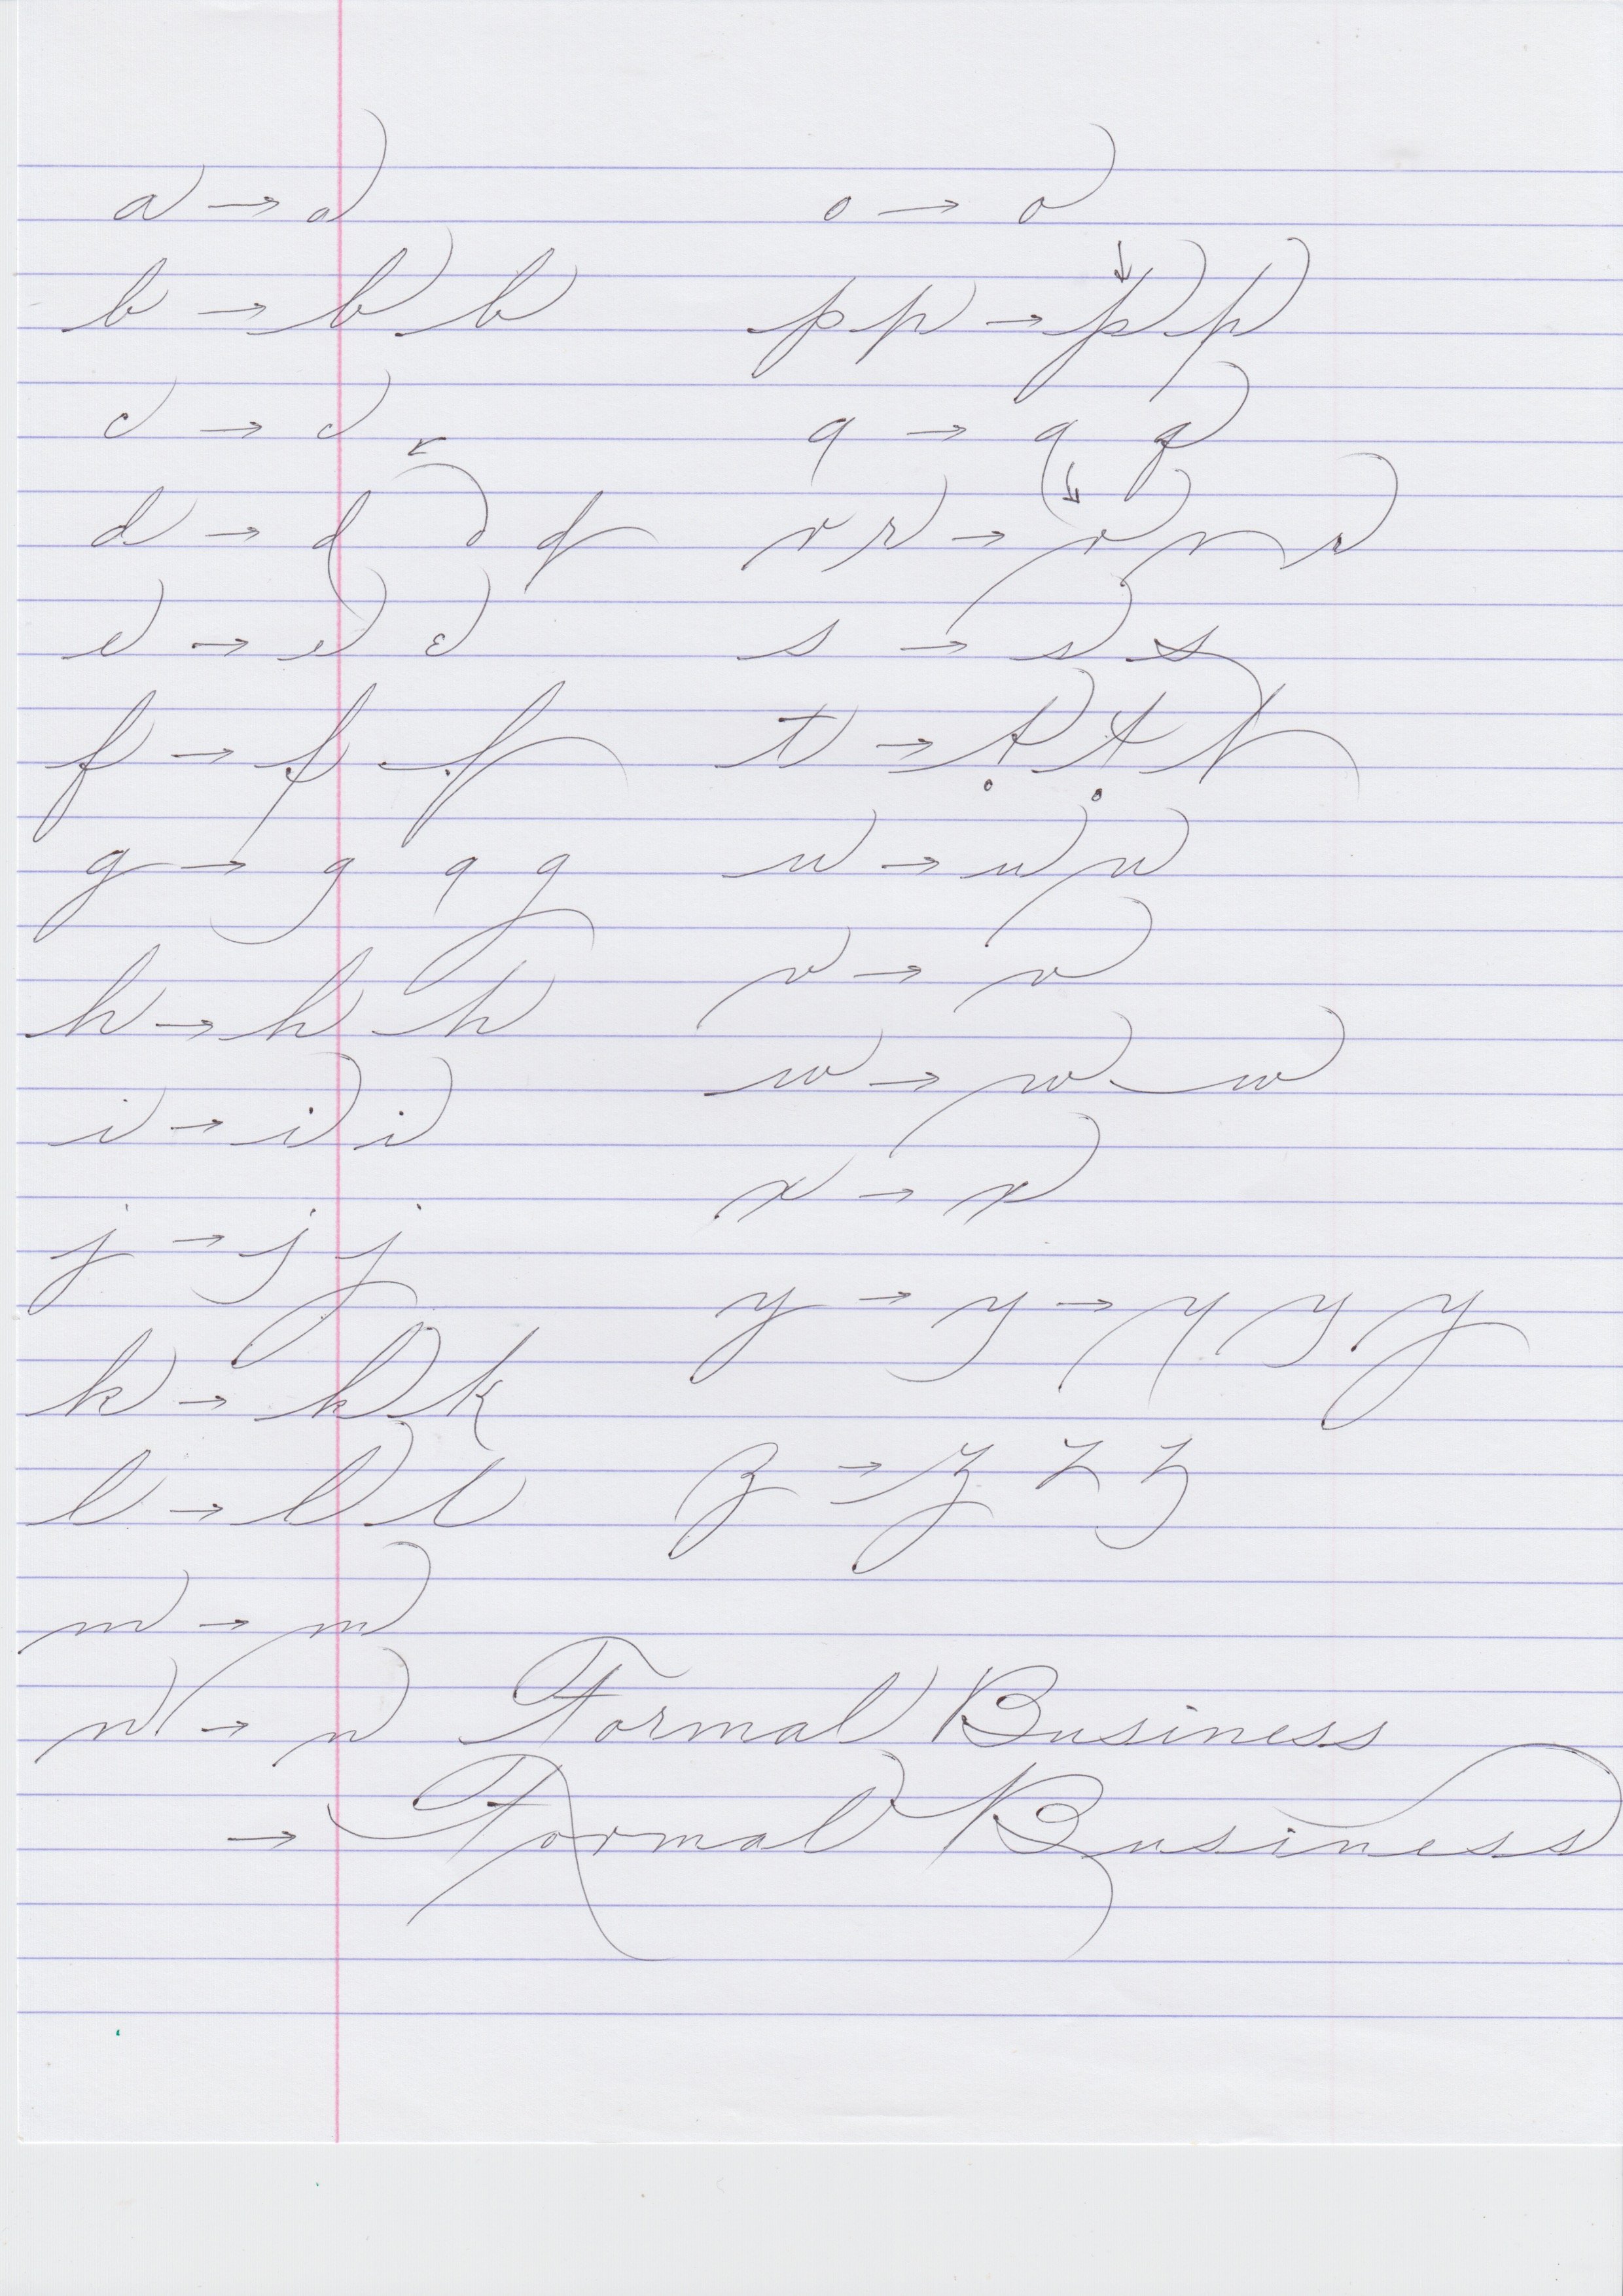 a → a
b → b b
c → c
d → d d d
e → e e
f → f f
g → g g g
h → h h
i → i i
j → j j
k → k k
l → l l
m → m
n → n
o → o
p p → p p
q → q q
r r → r r r
s → s s
t → t t t
u → u u
v → v
w → w w
x → x
y → y → y y y
z → z z z
Formal Business
→ Formal Business